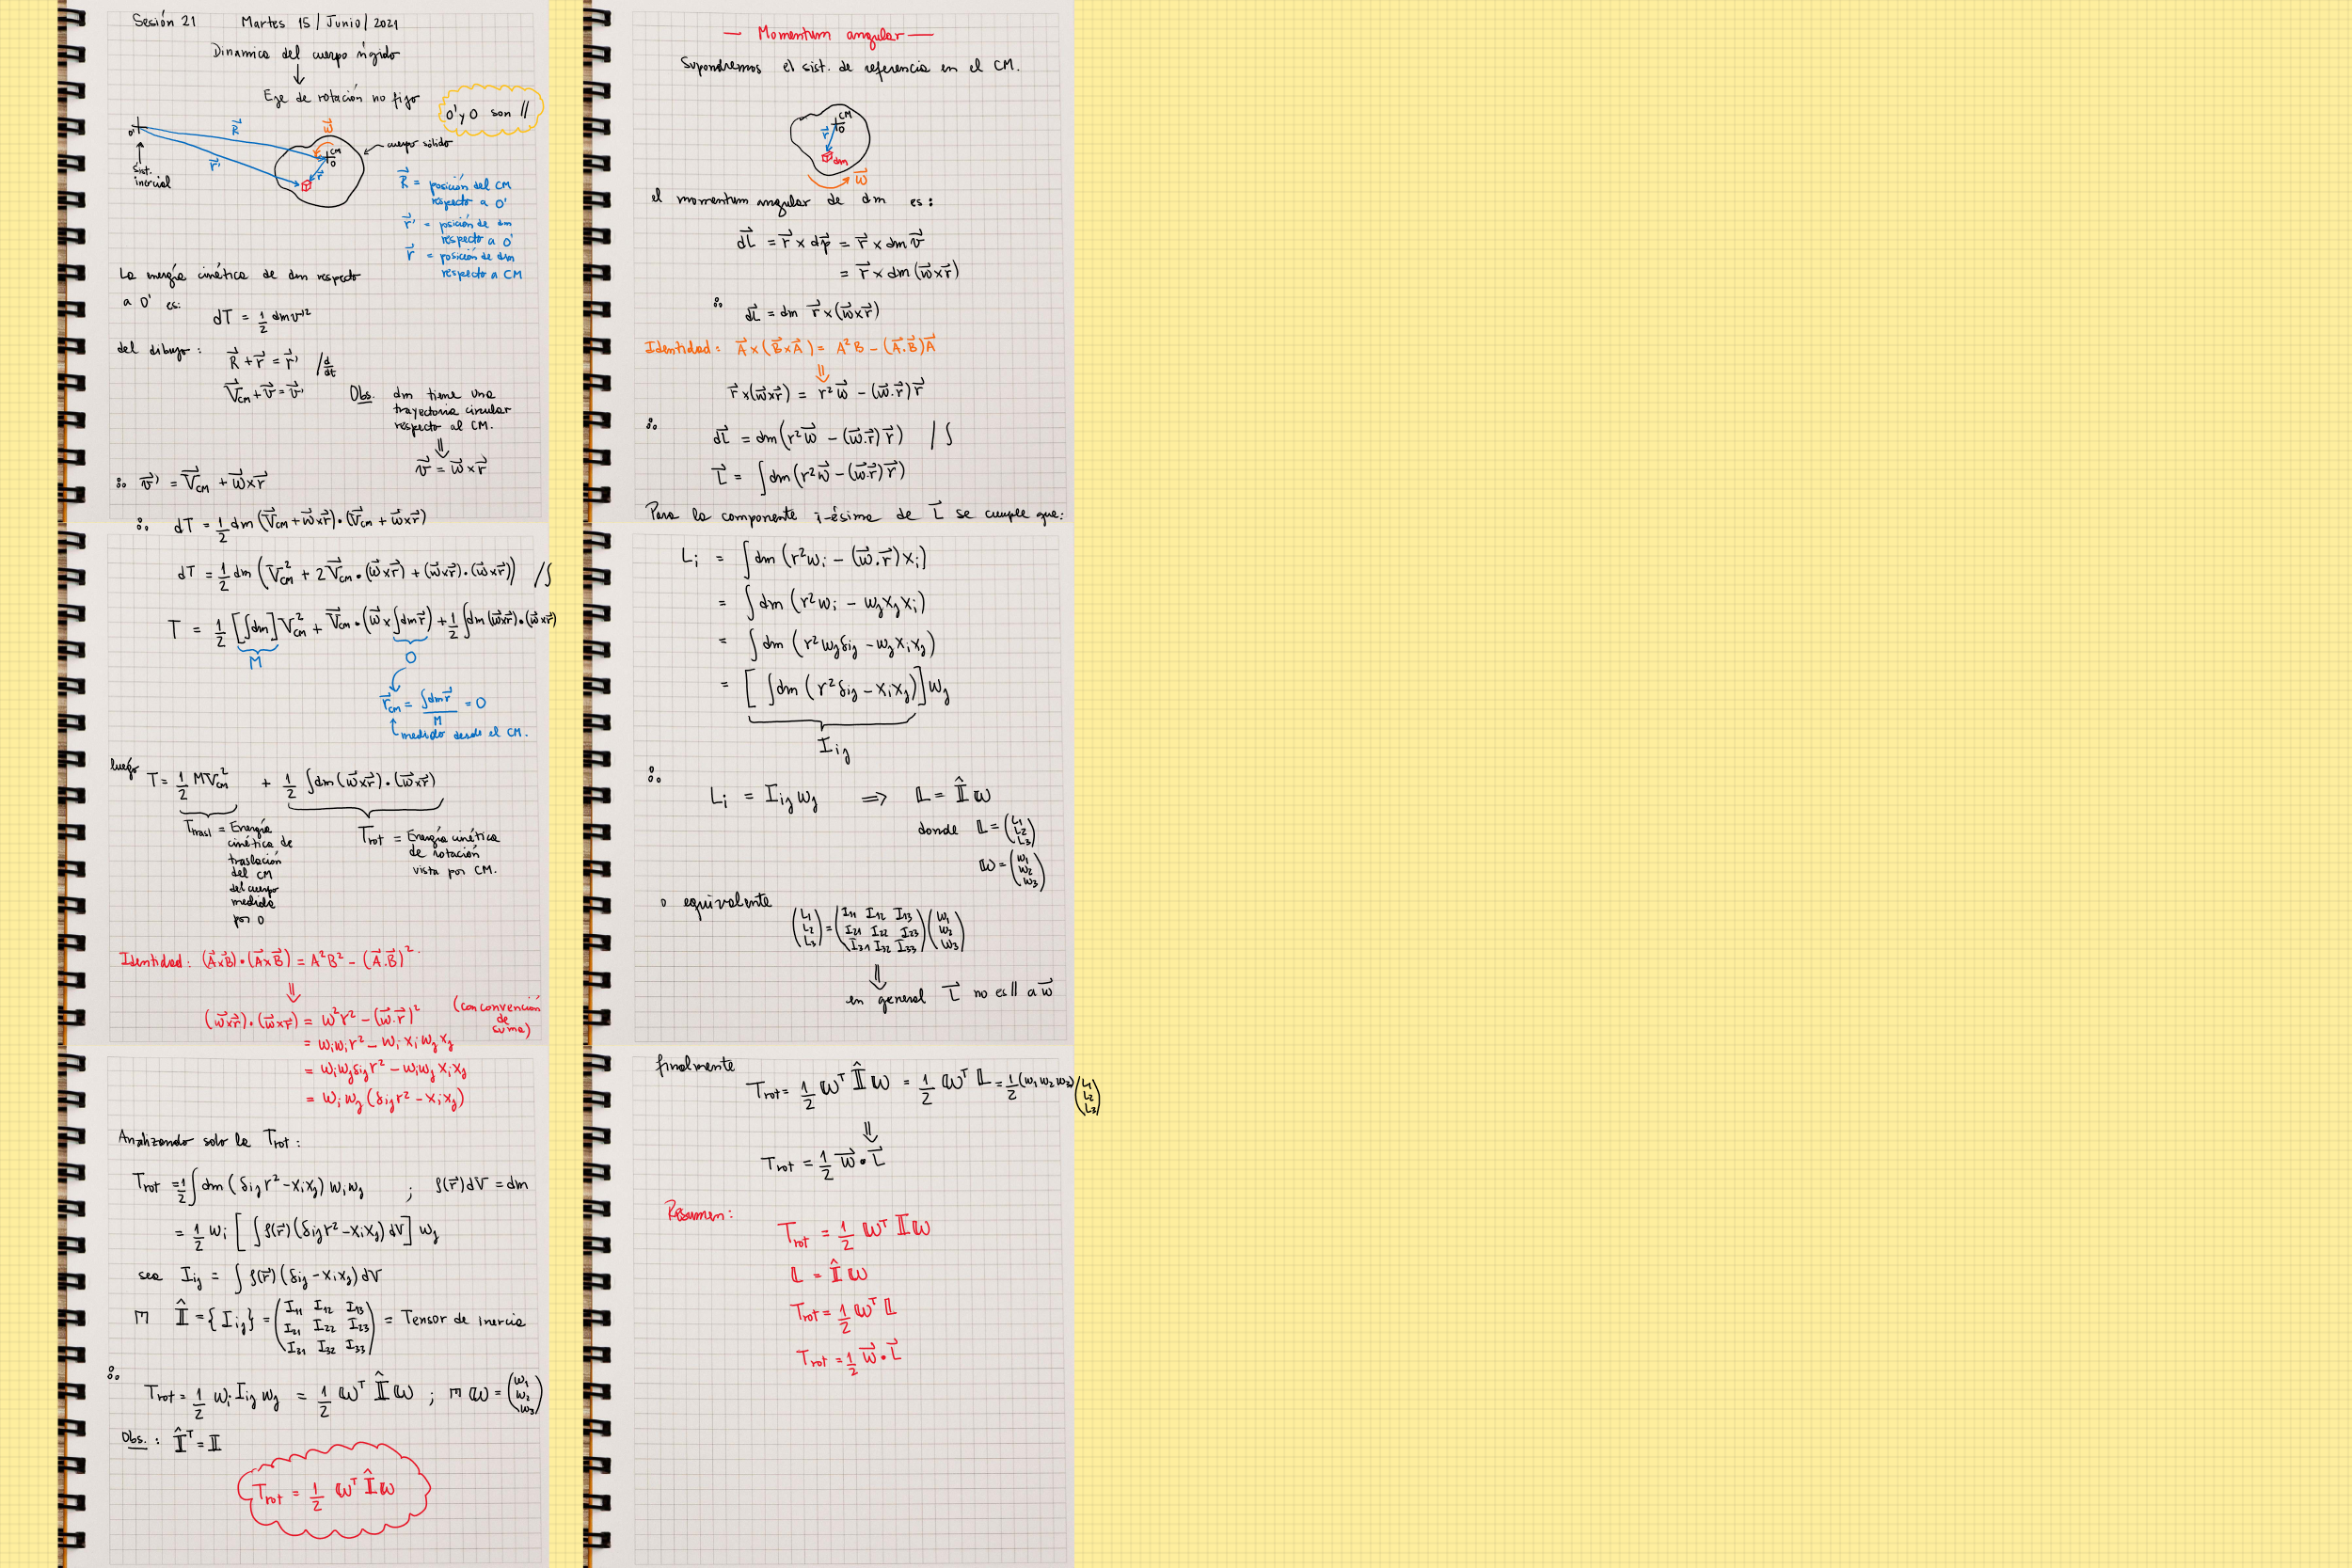 Sesión 21 Martes 15 / Junio / 2021
Dinamica del cuerpo rígido
↓
Eje de rotación no fijo
O' y O son //
O'
R⃗
w⃗
CM
O
r⃗'
r⃗
cuerpo sólido
Sist. inercial
R⃗ = posición del CM
respecto a O'
r⃗' = posición de dm
respecto a O'
r⃗ = posición de dm
respecto a CM
La energía cinética de dm respecto
a O' es:
dT = 1/2 dm v'²
del dibujo: R⃗ + r⃗ = r⃗' / d/dt
V⃗cm + v⃗ = v⃗'
Obs. dm tiene una
trayectoria circular
respecto al CM.
⇓
v⃗ = w⃗ × r⃗
∴ v⃗' = V⃗cm + w⃗×r⃗
∴ dT = 1/2 dm (V⃗cm + w⃗×r⃗)•(V⃗cm + w⃗×r⃗)
dT = 1/2 dm (V²cm + 2V⃗cm•(w⃗×r⃗) + (w⃗×r⃗)•(w⃗×r⃗)) /∫
T = 1/2 [∫dm] V²cm + V⃗cm•(w⃗ × ∫dm r⃗) + 1/2 ∫dm (w⃗×r⃗)•(w⃗×r⃗)
M
0
r⃗cm = ∫dm r⃗ / M = 0
medido desde el CM.
luego T = 1/2 MV²cm + 1/2 ∫dm (w⃗×r⃗)•(w⃗×r⃗)
Ttrasl = Energía
cinética de
traslación
del CM
del cuerpo
medida
por O
Trot = Energía cinética
de rotación
vista por CM.
Identidad: (A⃗×B⃗)•(A⃗×B⃗) = A²B² - (A⃗.B⃗)².
⇓
(w⃗×r⃗)•(w⃗×r⃗) = w²r² - (w⃗.r⃗)² (con convención
de
suma)
= wiwi r² - wi xi wj xj
= wiwjδij r² - wiwj xixj
= wi wj (δij r² - xixj)
Analizando solo la Trot:
Trot = 1/2 ∫dm (δij r² - xixj) wiwj ; ρ(r⃗)dV = dm
= 1/2 wi [∫ρ(r⃗)(δij r² - xixj) dV] wj
sea Iij = ∫ρ(r⃗)(δij - xixj) dV
m 𝕀̂ = {Iij} = (I11 I12 I13
I21 I22 I23
I31 I32 I33) = Tensor de inercia
∴
Trot = 1/2 wi Iij wj = 1/2 𝕨ᵀ 𝕀̂ 𝕨 ; m 𝕨 = (w1
w2
w3)
Obs.: 𝕀̂ᵀ = 𝕀
Trot = 1/2 𝕨ᵀ 𝕀̂ 𝕨
— Momentum angular —
Supondremos el sist. de referencia en el CM.
CM
O
r⃗
dm
w⃗
el momentum angular de dm es:
dL⃗ = r⃗ × dp⃗ = r⃗ × dm v⃗
= r⃗ × dm (w⃗×r⃗)
∴
dL⃗ = dm r⃗×(w⃗×r⃗)
Identidad: A⃗×(B⃗×A⃗) = A²B - (A⃗.B⃗)A⃗
⇓
r⃗×(w⃗×r⃗) = r²w⃗ - (w⃗.r⃗)r⃗
∴
dL⃗ = dm(r²w⃗ - (w⃗.r⃗)r⃗) /∫
L⃗ = ∫dm(r²w⃗ - (w⃗.r⃗)r⃗)
Para la componente i-ésima de L⃗ se cumple que:
Li = ∫dm (r²wi - (w⃗.r⃗)xi)
= ∫dm (r²wi - wjxjxi)
= ∫dm (r²wjδij - wjxixj)
= [∫dm (r²δij - xixj)] wj
Iij
∴
Li = Iij wj ⟹ 𝕃 = 𝕀̂ 𝕨
donde 𝕃 = (L1
L2
L3)
𝕨 = (w1
w2
w3)
o equivalente
(L1
L2
L3) = (I11 I12 I13
I21 I22 I23
I31 I32 I33) (w1
w2
w3)
⇓
en general L⃗ no es // a w⃗
finalmente
Trot = 1/2 𝕨ᵀ 𝕀̂ 𝕨 = 1/2 𝕨ᵀ 𝕃 = 1/2 (w1 w2 w3) (L1
L2
L3)
⇓
Trot = 1/2 w⃗•L⃗
Resumen:
Trot = 1/2 𝕨ᵀ 𝕀 𝕨
𝕃 = 𝕀̂ 𝕨
Trot = 1/2 𝕨ᵀ 𝕃
Trot = 1/2 w⃗•L⃗